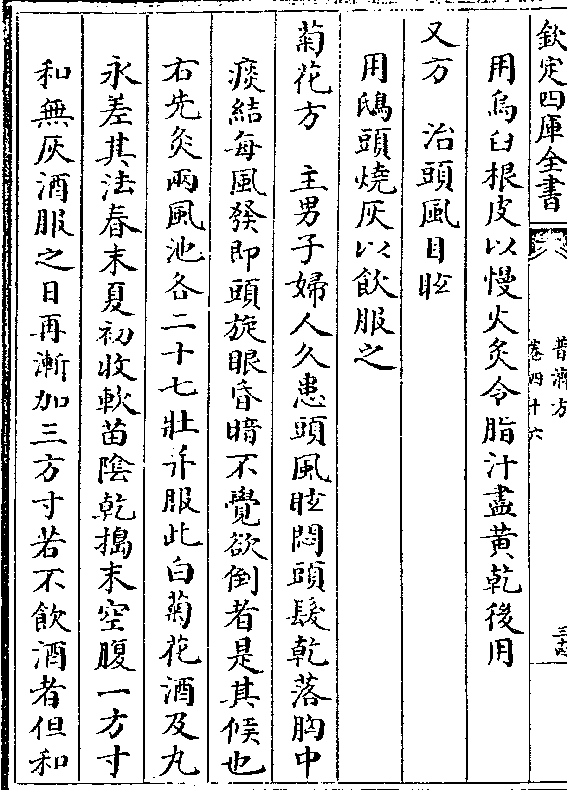 欽定四庫全書
普濟方
卷四十六
用烏臼根皮以慢火炙令脂汁盡黄乾後用
又方　治頭風目眩
用鴟頭燒灰以飲服之
菊花方　主男子婦人久患頭風眩悶頭髮乾落胸中
痰結每風發即頭旋眼昏暗不覺欲倒者是其候也
右先灸兩風池各二十七壯并服此白菊花酒及丸
永差其法春末夏初收軟苗陰乾搗末空腹一方寸
和無灰酒服之日再漸加三方寸若不飲酒者但和